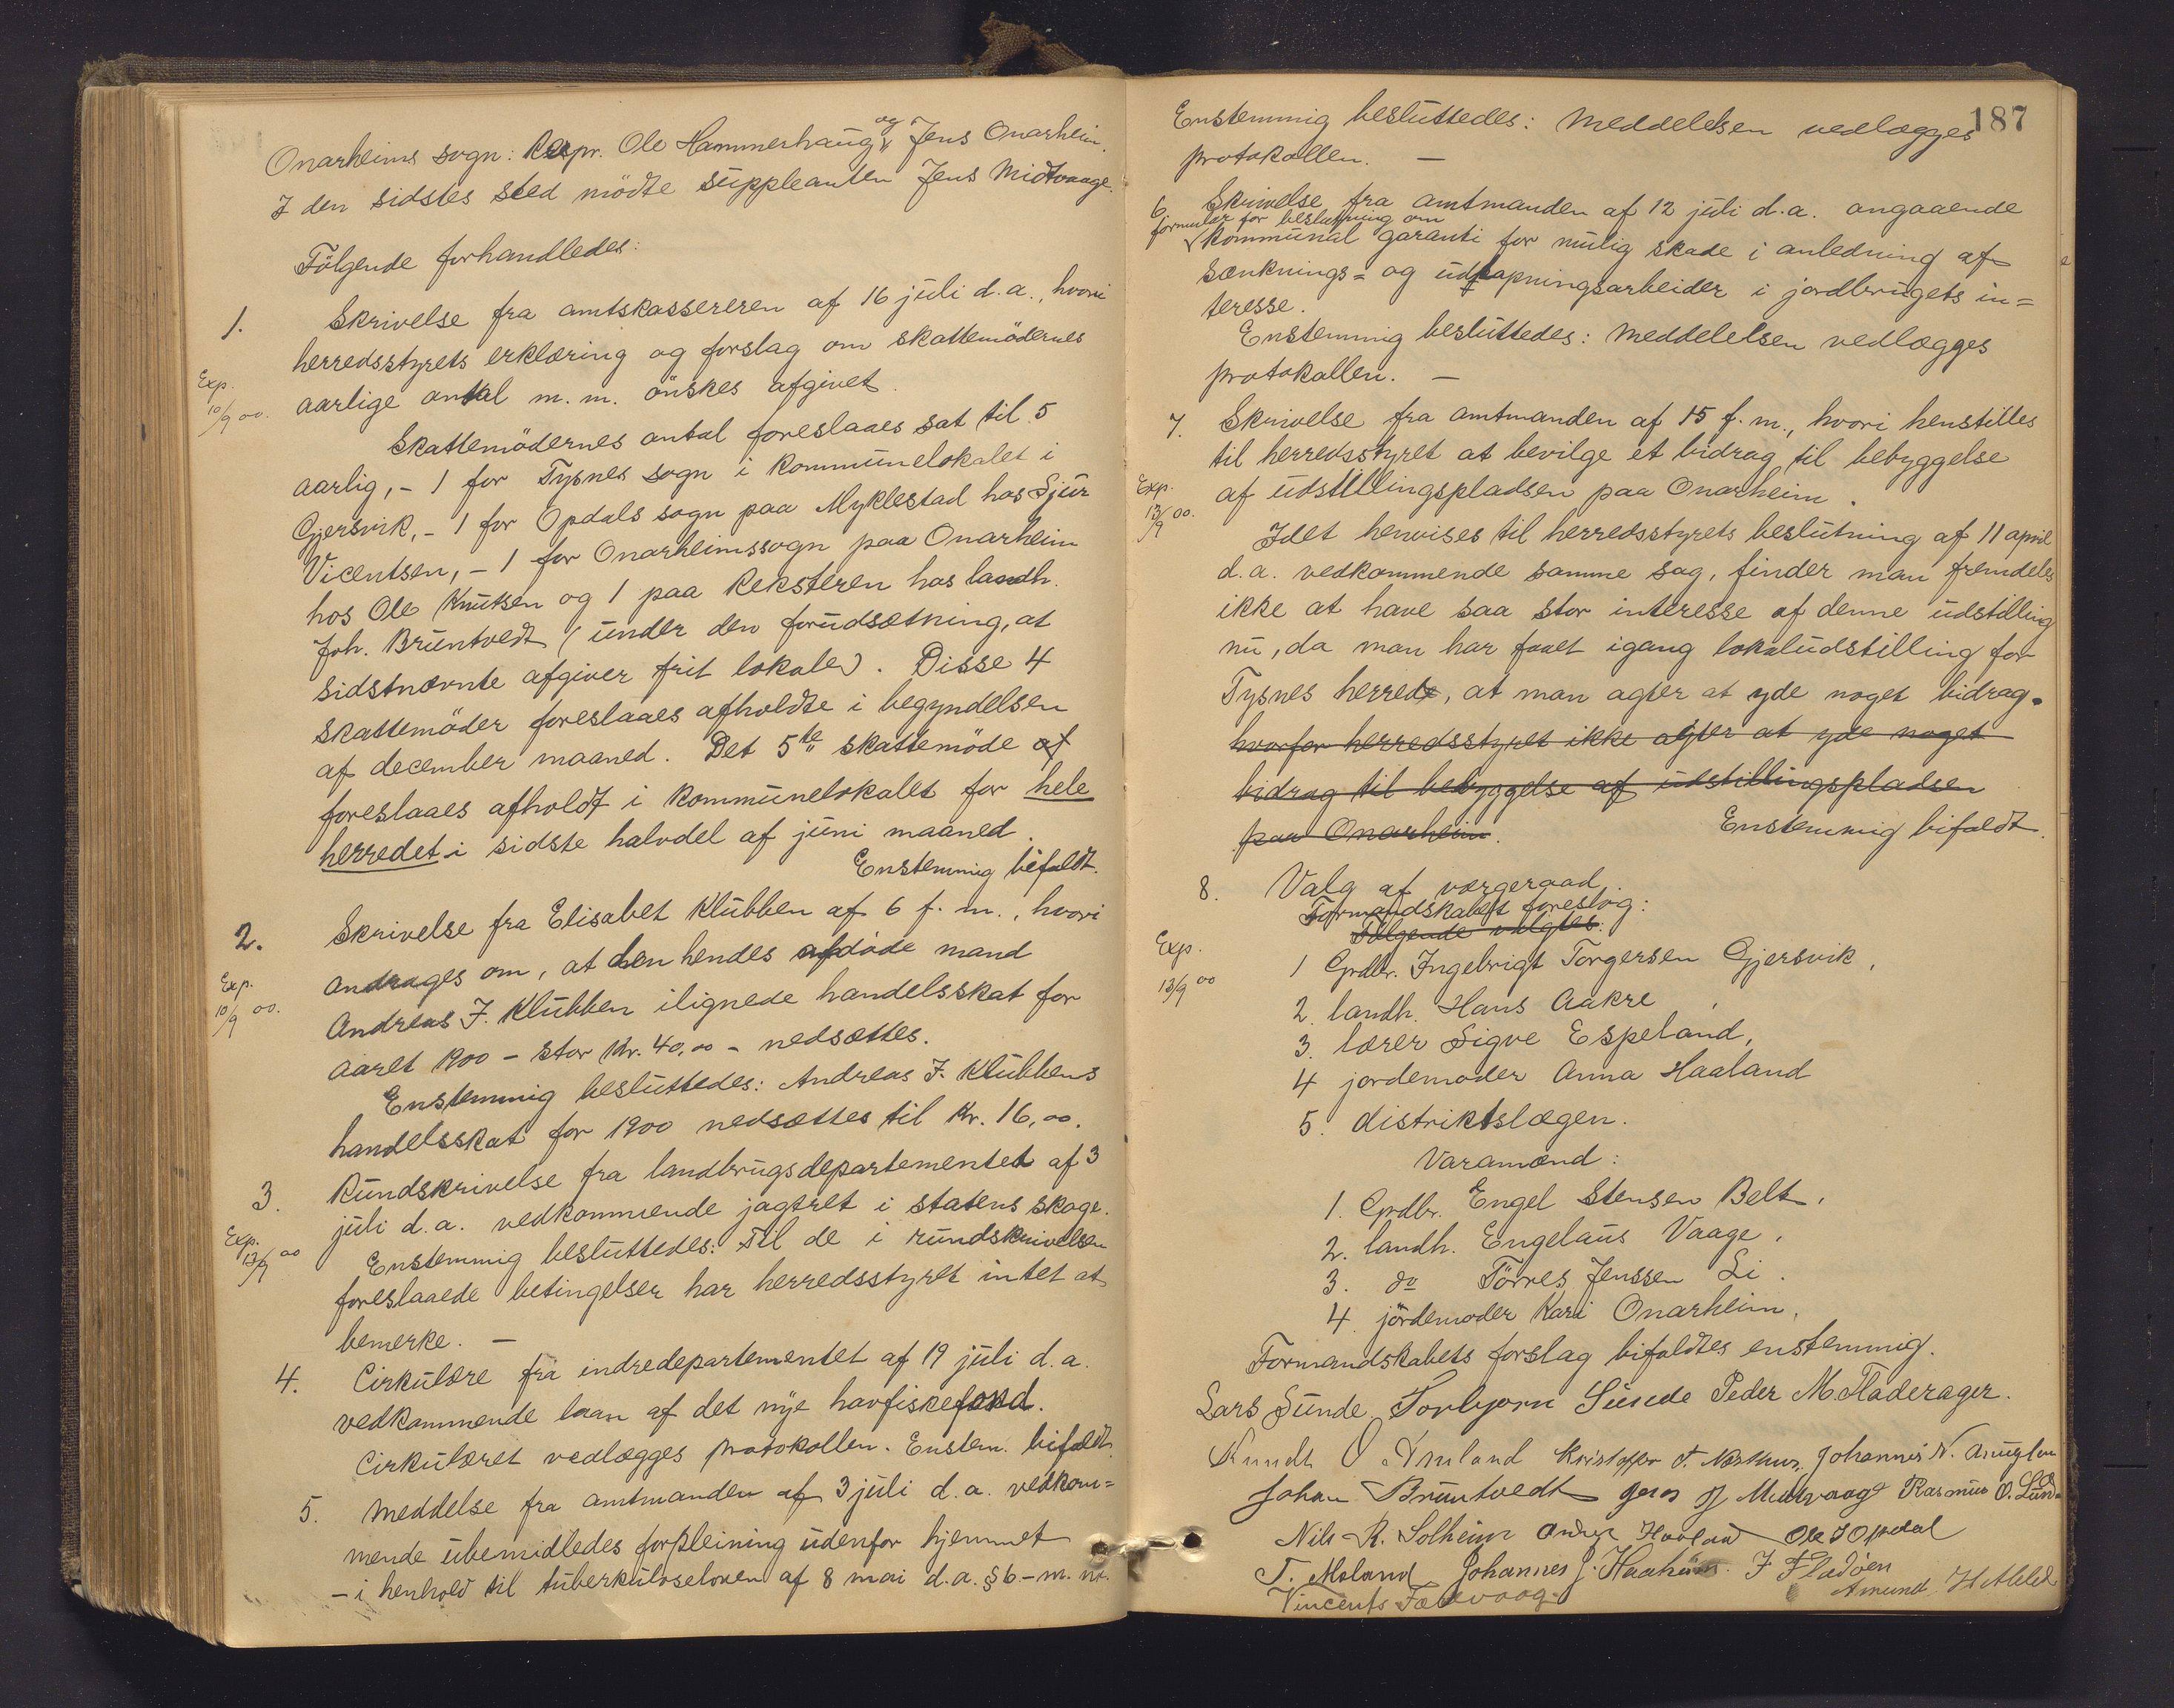 Onarheims sogn: Repr. Ole Hammerhaug og Jens Onarheim.
I den sidstes sted mödte suppleanten Jens Midtvaage.
Følgende forhandledes:
1. Skrivelse fra amtskassereren af 16 juli d.a., hvori
herredsstyrets erklæring og forslag om skattemödernes
Exp. 10/9 00. aarlige antal m.m. önskes afgivet.
Skattemödernes antal foreslaaes sat til 5
aarlig, - 1 for Tysnes sogn i kommunelokalet i
Gjersvik, - 1 for Opdals sogn paa Myklestad hos Sjur
Vicentsen, - 1 for Onarheimssogn paa Onarheim
hos Ole Knutsen og 1 paa Reksteren hos landh.
Joh. Bruntvedt (under den forudsætning, at
sidstnævnte afgiver frit lokale). Disse 4
skattemöder foreslaaes afholdte i begyndelsen
af december maaned. Det 5te skattemöde af
foreslaaes afholdt i kommunelokalet for hele
herredet i sidste halvdel af juni maaned.
Enstemmig bifaldt.
2. Skrivelse fra Elisabet Klubben af 6 f.m., hvori
Exp. 10/9 00. andrages om, at den hendes afdöde mand
Andreas J. Klubben ilignede handelsskat for
aaret 1900 - stor Kr. 40,00 - nedsættes.
Enstemmig besluttedes: Andreas J. Klubbens
handelsskat for 1900 nedsættes til Kr. 16,00.
3. Rundskrivelse fra landbrugsdepartementet af 3
juli d.a. vedkommende jagtret i statens skoge.
Exp. 13/9 00 Enstemmig besluttedes: Til de i rundskrivelsen
foreslaaede betingelser har herredsstyret intet at
bemerke. -
4. Cirkulære fra indredepartementet af 19 juli d.a.
vedkommende laan af det nye havfiskefond.
Cirkulæret vedlægges protokollen. Enstem. bifaldt.
5. Meddelse fra amtmanden af 3 juli d.a. vedkom=
mende ubemidledes forpleining udenfor hjemmet
- i henhold til tuberkuloseloven af 8 mai d.a. § 6 - m.m.
187
Enstemmig besluttedes: Meddelelsen vedlægges
protokollen. -
6. Skrivelse fra amtmanden af 12 juli d.a. angaaende
formular for beslutning om
kommunal garanti for mulig skade i anledning af
sænknings= og udtapningsarbeider i jordbrugets in=
teresse.
Enstemmig besluttedes: Meddelelsen vedlægges
protokollen. -
7. Skrivelse fra amtmanden af 15 f.m., hvori henstilles
til herredsstyret at bevilge et bidrag til bebyggelse
Exp. 13/9 00. af udstillingspladsen paa Onarheim.
Idet henvises til herredsstyrets beslutning af 11 april
d.a. vedkommende samme sag, finder man fremdeles
ikke at have saa stor interesse af denne udstilling
nu, da man har faaet igang lokaludstilling for
Tysnes herred, at man agter at yde noget bidrag.
hvorfor herredsstyret ikke agter at yde noget
bidrag til bebyggelse af udstillingspladsen
paa Onarheim. Enstemmig bifaldt.
8. Valg af værgeraad.
Formandskabet foreslog:
Følgende valgtes:
Exp. 13/9 00
1 Grdbr. Ingebrigt Torgersen Gjersvik,
2. landh. Hans Aakre,
3. lærer Sigve Espeland,
4 jordemoder Anna Haaland
5. distriktslægen.
Varamænd:
1. Grdbr. Engel Stensen Belt,
2. landh. Engelaus Vaage,
3. do Törres Jenssen Li.
4. jordemoder Kari Onarheim,
Formandskabets forslag bifaldtes enstemmig.
Lars Sunde Torbjørn Sunde Peder M. Fladerager.
Knudt O Amland Kristoffer T. Johannis N.
Johan Bruntvedt Jens Midtvaage Rasmus O. Sunde
Nils R. Solheim Anders Haaland Ole J Opdal
T. Meland Johannes J. J Fladöen
Vincents Amund